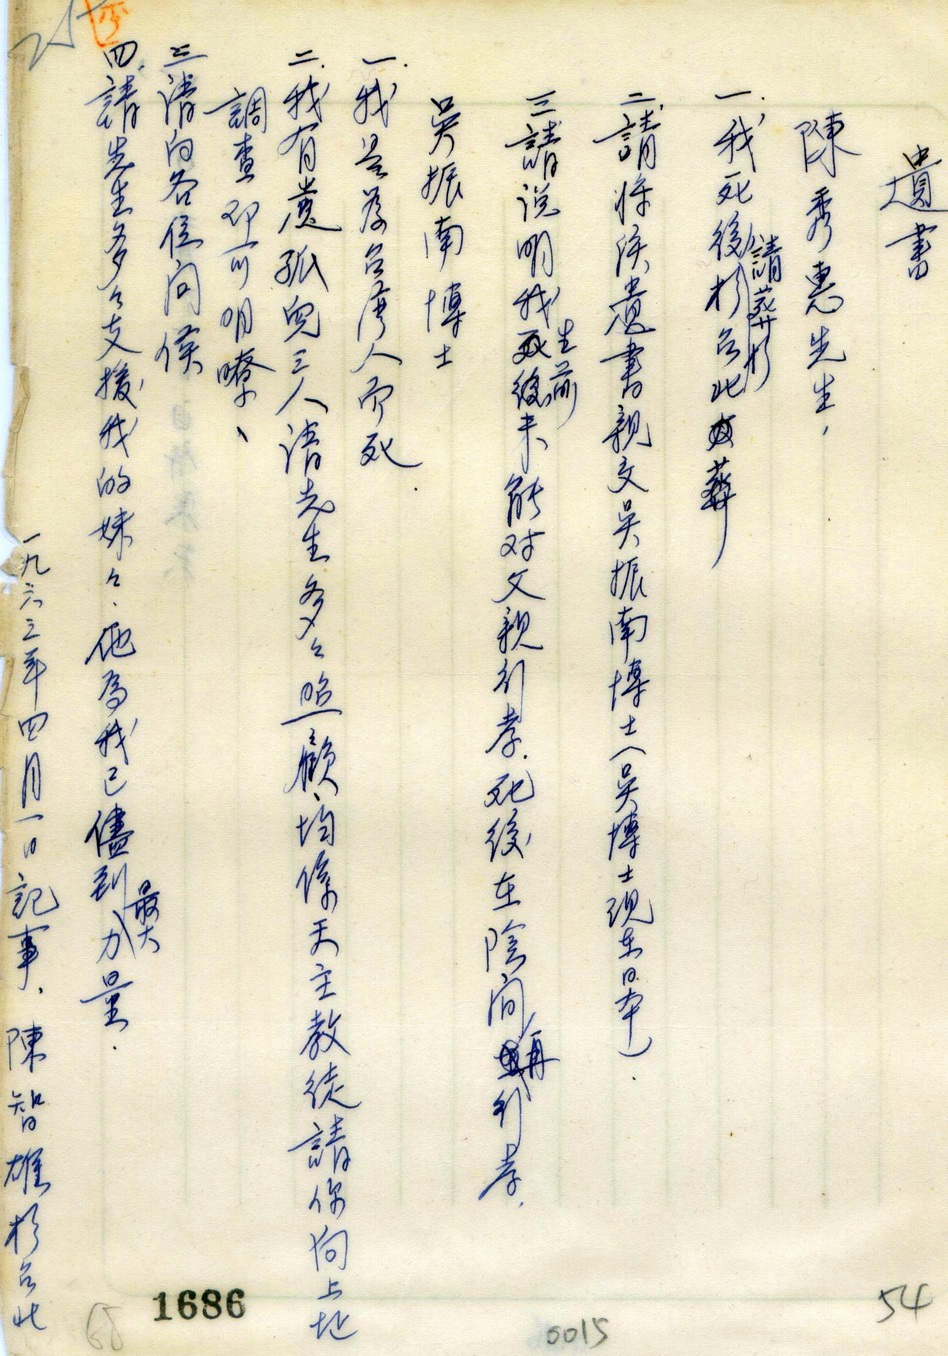 遺書
陳秀惠先生,
一.我死後請葬於台北
二.請將係遺書親交吳振南博士(吳博士現在日本).
三.請説明我生前未能对父親行孝.死後在陰间再行孝.
吳振南博士
一.我是為台湾人而死.
二.我有遺孤兒三人請先生多々照顧、均係天主教徒請你向上址
調查即可明瞭、
三.請向各位问候
四.請先生多々支援我的妹々.他為我已儘到最大力量.
一九六三年四月一日記事.陳智雄於台北
1686
0015
54